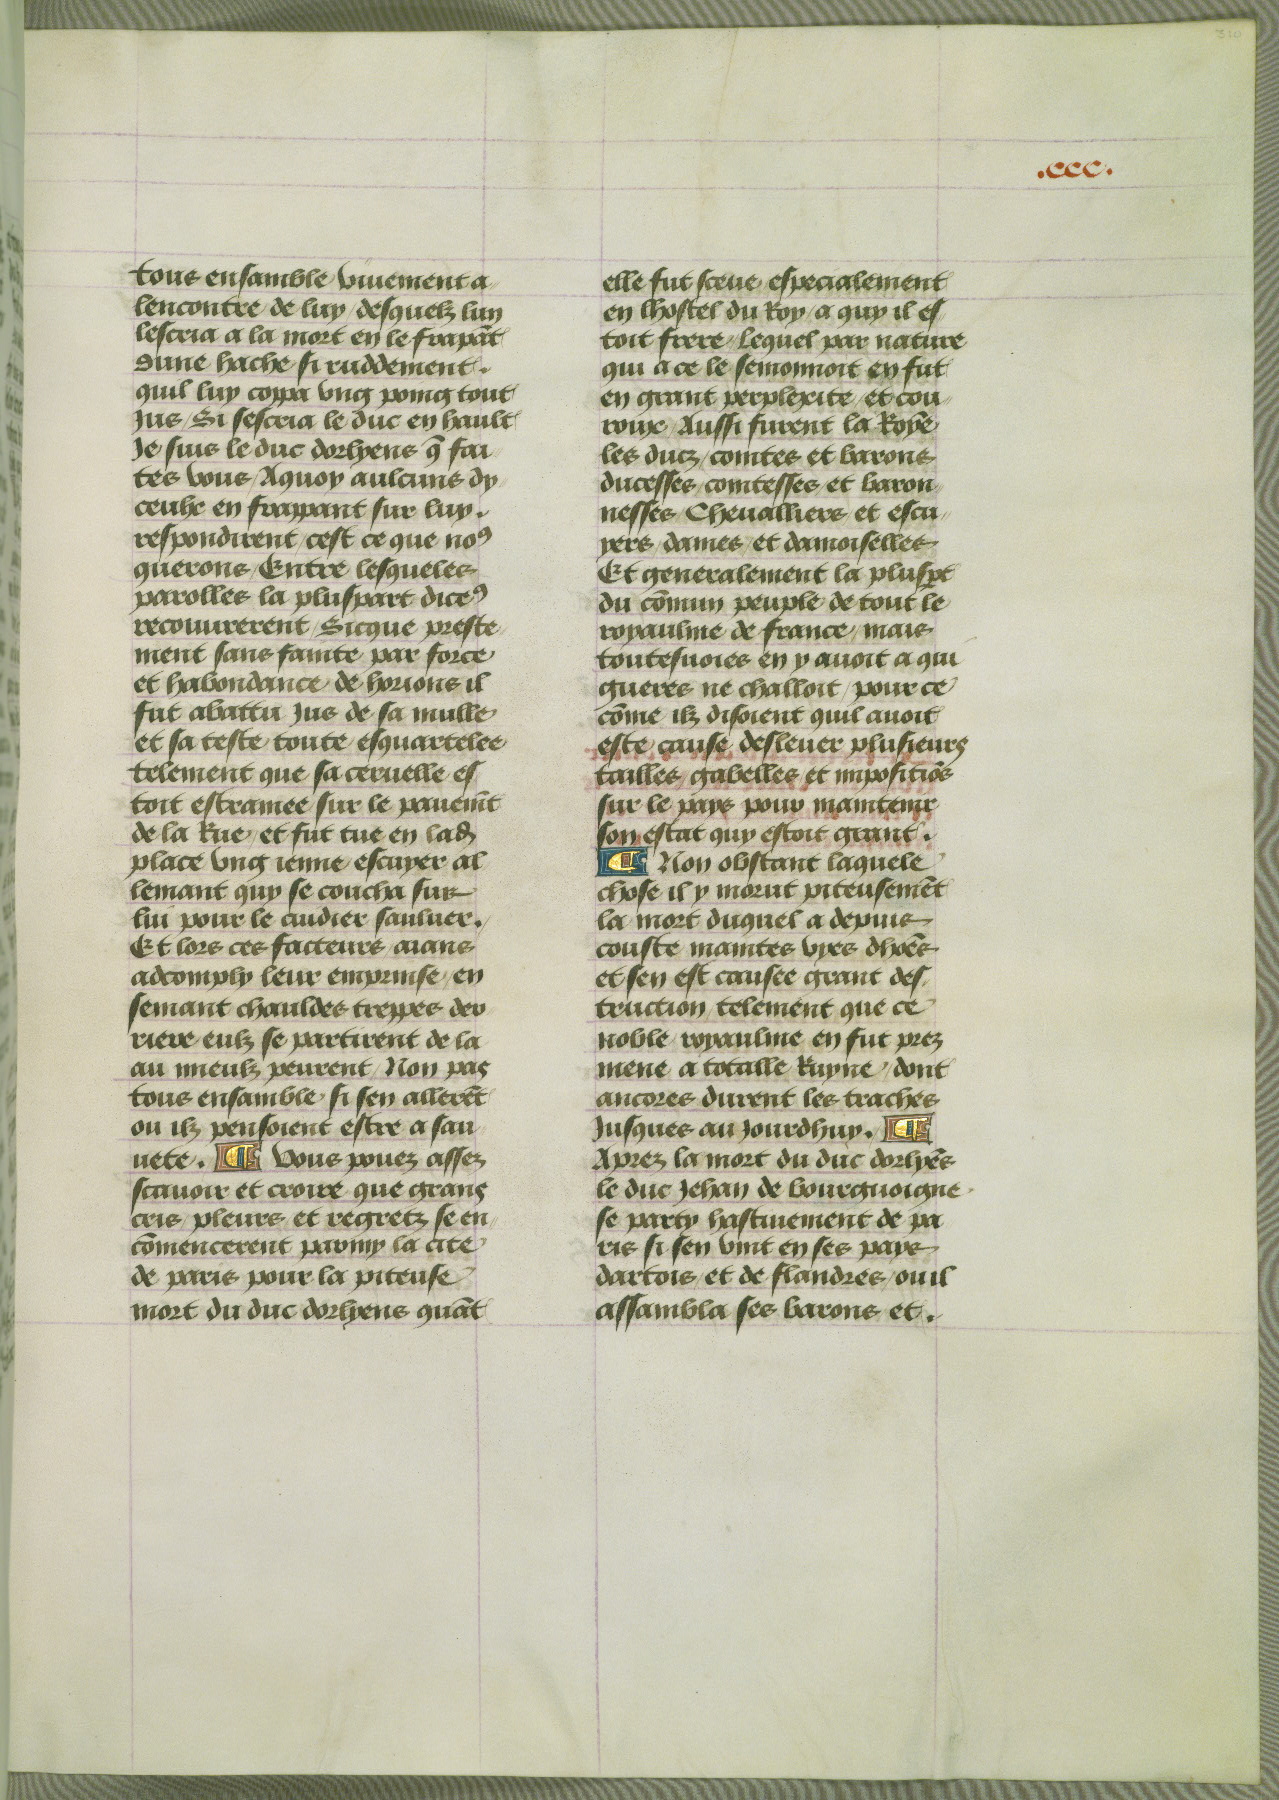 310
.ccc.
tous ensamble / viuement a
lencontre de luy / desquelz lun
lescria a la mort en le frapāt
dune hache si ruddement.
quil luy copa vng poing tout
Jus / Si sescria le duc en hault
Je suis le duc dorlyens q̄ fai
tes vous / Aquoy aulcuns dy
ceulx en frappant sur luy.
respondirent / cest ce que noꝰ
querons / Entre lesqueles
parolles la pluspart diceꝰ
recouurerent / Sicque preste
ment sans fainte par force
et habondance de horions il
fut abattu Jus de sa mulle
et sa teste toute esquartelee
telement que sa ceruelle es
toit estramee sur le pauemt̄
de la Rue / et fut tue en lad
place vng ienne escuyer al
lemant quy se coucha sur
lui pour le cuidier sauluer.
Et lors ces facteurs aians
adcomply leur emprinse / en
semant chauldes treppes der
riere eulz se partirent de la
au mieulz peurent / Non pas
tous ensamble / si sen allerēt
ou ilz pensoient estre a sau
uete. ¶ Vous pouez assez
scauoir et croire que grans
cris / pleurs et regretz se en
cōmencerent parmy la cite
de paris pour la piteuse
mort du duc dorlyens quāt
elle fut sceue / especialement
en lhostel du Roy / a quy il es
toit frere / lequel par nature
qui a ce le semonnoit en fut
en grant perplexite / et cou
roux / Aussi furent la Royē
les ducz / comtes et barons
ducesses / comtesses et baron
nesses / Cheualliers et escu
yers / dames et damoiselles
Et generalement la pluspt
du cōmun peuple de tout le
royaulme de france / mais
toutesuoies en y auoit a qui
gueres ne challoit / pour ce
cōme ilz disoient quil auoit
este cause desleuer plusieurs
tailles / gabelles et impositiōs
sur le pays pour maintenir
son estat quy estoit grant.
¶ Non obstant laquele
chose il y morut piteusemēt
la mort duquel a depuis
couste maintes vyes dhōēs
et sen est causee grant des
truction telement que ce
noble royaulme en fut prez
mene a totalle Ruyne / dont
ancores durent les traches
Jusques au Jourdhuy. ¶
Aprez la mort du duc dorlyēs
le duc Jehan de bourguoigne
se party hastiuement de pa
ris si sen vint en ses pays
dartois / et de flandres / ou il
assambla ses barons et.